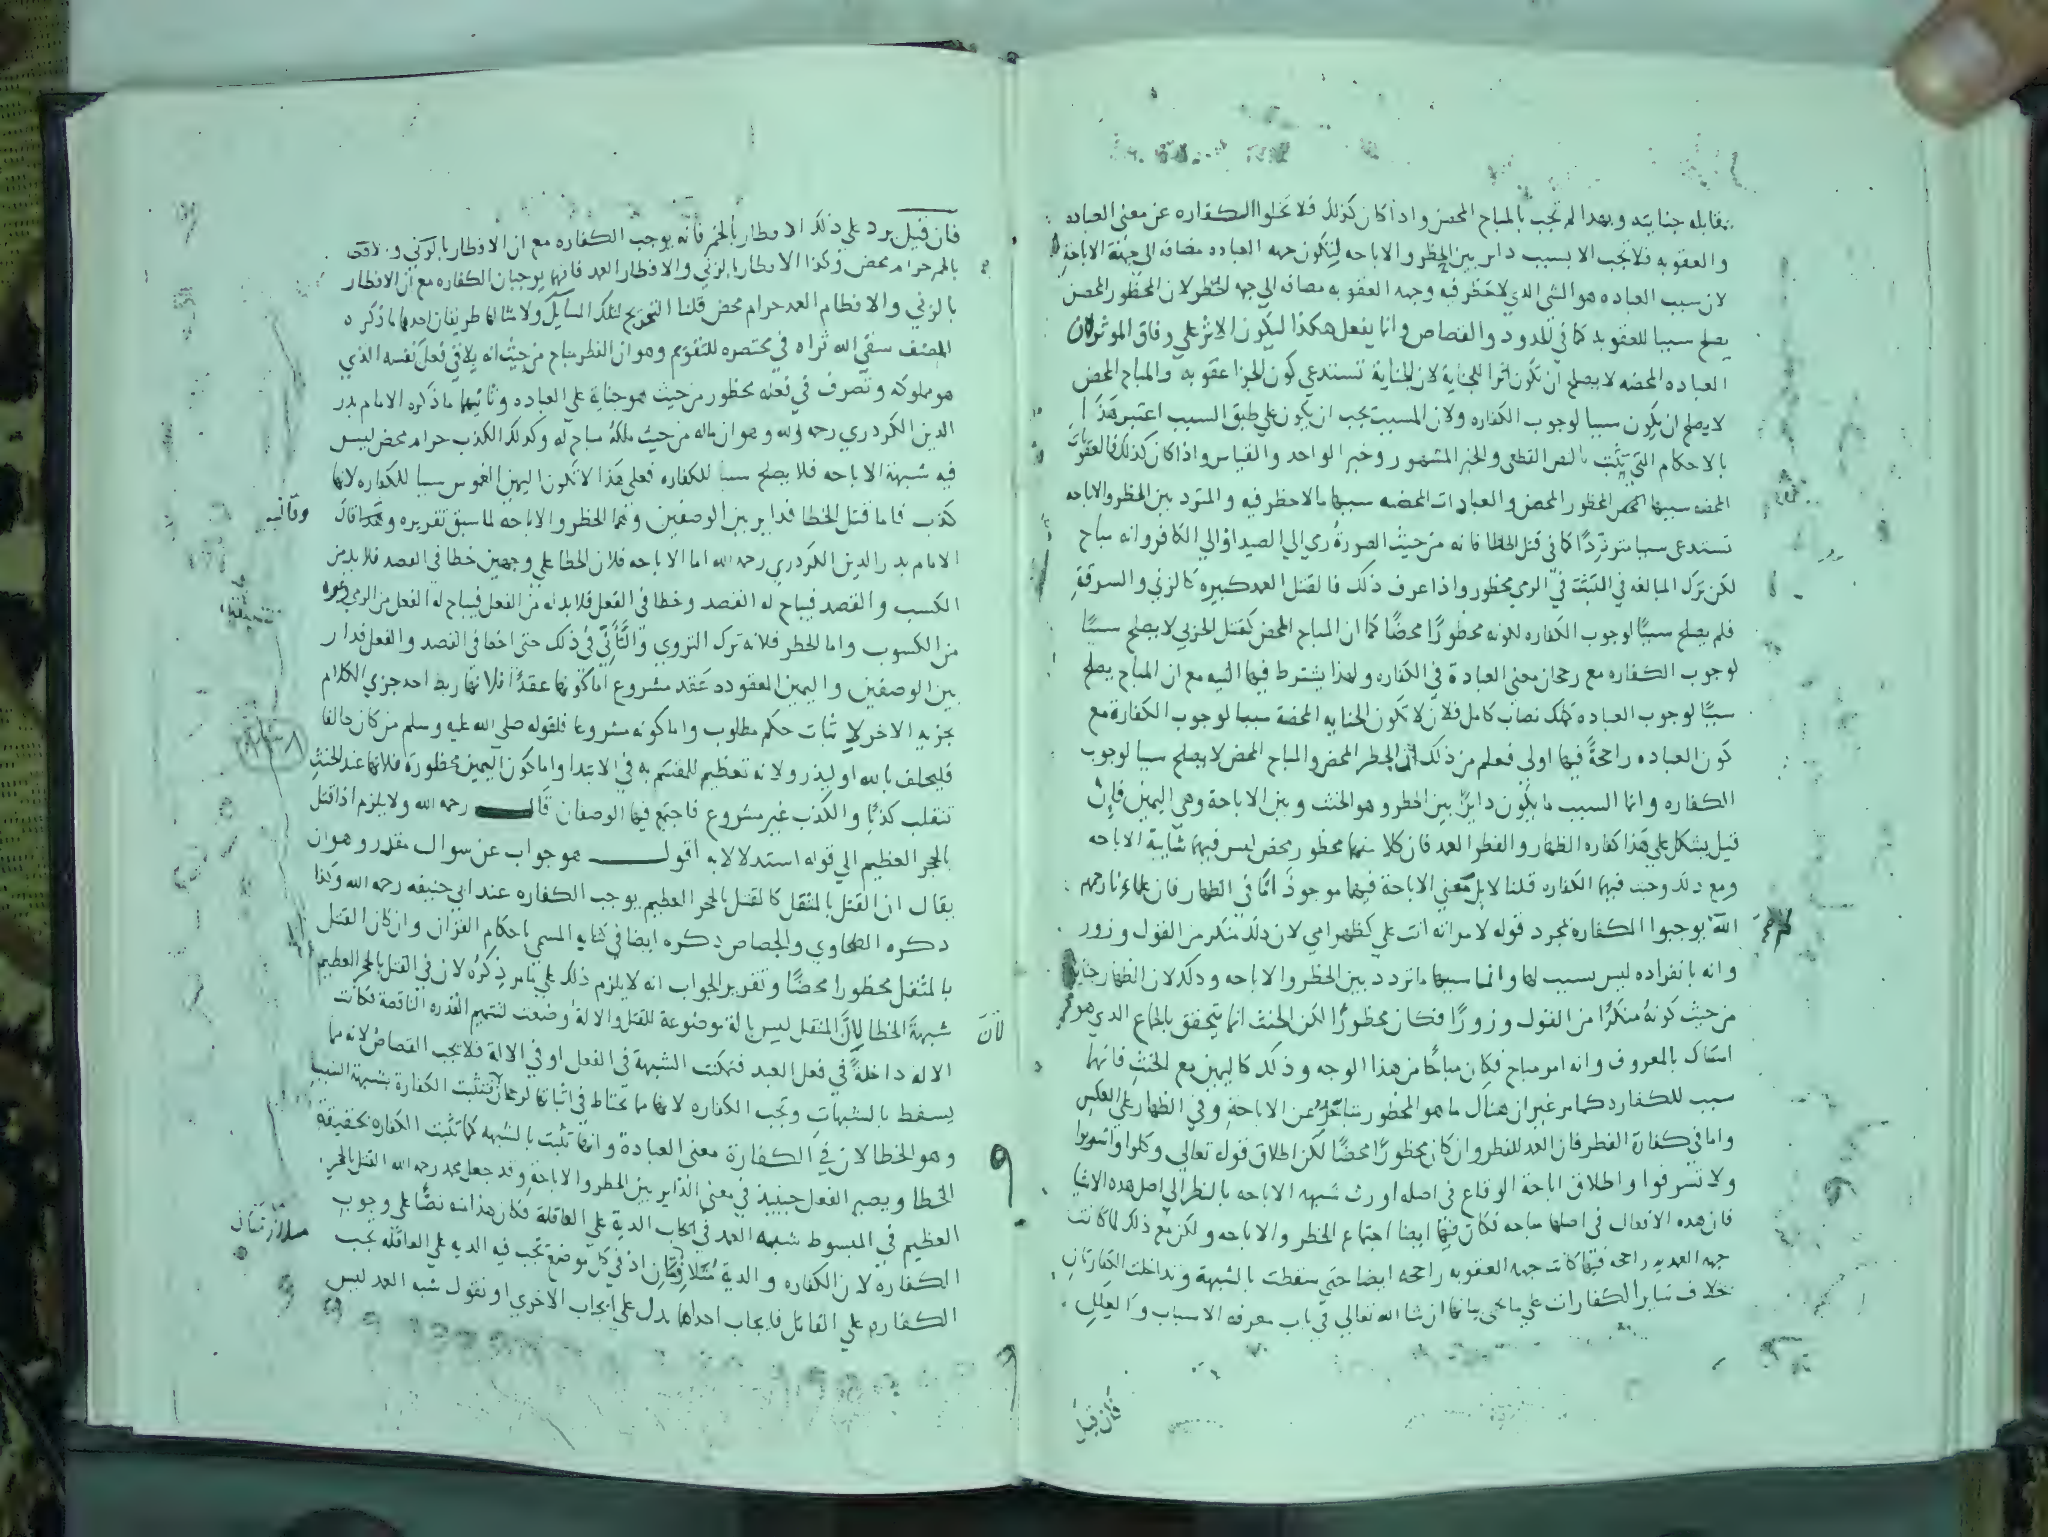 بمقابله جنايته ولهذا لم تجب بالمباح المحض واذا كان كذلك فلا تخلوا الكفاره عن معنى العباده
والعقوبه فلا تجب الا بسبب داير بين الحظر والاباحه لتكون جهه العباده مضافه الى جهة الاباحة
لان سبب العباده هو الشى الذي لا حظر فيه وجهه العقوبه مضافه الى جهه الحظر لان المحظور المحض
يصلح سببا للعقوبه كما في الحدود والقصاص وانما يفعل هكذا ليكون الاثر على وفاق الموثر لان
العباده المحضه لا يصلح ان تكون اثرا للجناية لان الجناية تستدعي كون الجزا عقوبه والمباح المحض
لا يصلح ان يكون سببا لوجوب الكفاره ولان المسبب يجب ان يكون على طبق السبب اعتبر هذا
بالاحكام التي يثبت بالنص القطعى والخبر المشهور وخبر الواحد والقياس واذا كان كذلك فالعقوبات
المحضه سببها المحظور المحض والعبادات المحضه سببها ما لا حظر فيه والمتردد بين الحظر والاباحه
تستدعى سببا مترددا كما في قتل الخطا فانه من حيث الصورة رمى الى الصيد او الى الكافر وانه مباح
لكن ترك المبالغه في التثبت في الرمي محظور واذا عرف ذلك فالقتل العمد كبيره كالزني والسرقة
فلم يصلح سببا لوجوب الكفاره لكونه محظورا محضا كما ان المباح المحض كقتل الحربي لا يصلح سببا
لوجوب الكفاره مع رجحان معنى العبادة في الكفاره ولهذا يشترط فيها النيه مع ان المباح يصلح
سببا لوجوب العباده كملك نصاب كامل فلان لا تكون الجنايه المحضة سببا لوجوب الكفارة مع
كون العباده راجحة فيها اولى فعلم من ذلك ان الحظر المحض والمباح المحض لا يصلح سببا لوجوب
الكفاره وانما السبب ما يكون دايرا بين الحظر وهو الحنث وبين الاباحة وهى اليمين فان
قيل يشكل على هذا كفاره الظهار والفطر العمد فان كلا منهما محظور محض ليس فيهما شايبة الاباحه
ومع ذلك وجبت فيهما الكفاره قلنا لا بل معنى الاباحة فيهما موجود اما في الظهار فان علماءنا رحمهم
الله لم يوجبوا الكفاره بمجرد قوله لامراته انت علي كظهر امي لان ذلك منكر من القول وزور
وانه بانفراده ليس بسبب لها وانما سببها ما تردد بين الحظر والاباحه وذلك لان الظهار جناية
من حيث كونه منكرا من القول وزورا فكان محظورا لكن الحنث انما يتحقق بالجماع الذي هو
امساك بالمعروف وانه امر مباح فكان مباحا من هذا الوجه وذلك كاليمين مع الحنث فانها
سبب للكفاره كما مر غير ان هناك ما هو المحظور متاخر عن الاباحة وفي الظهار على العكس
واما في كفارة الفطر فان العمد للفطر وان كان محظورا محضا لكن اطلاق قوله تعالى وكلوا واشربوا
ولا تسرفوا واطلاق اباحة الوقاع في اصله اورث شبهه الاباحه بالنظر الى اصل هذه الاشيا
فان هذه الافعال في اصلها مباحه فكان فيها ايضا اجتماع الحظر والاباحه ولكن مع ذلك لما كانت
جهه العمديه راجحه فيها كانت جهه العقوبه راجحه ايضا حتى سقطت بالشبهة وتداخلت الكفارتان
بخلاف ساير الكفارات على ما يجى بيانها ان شا الله تعالى في باب معرفه الاسباب والعلل
فان قيل
فان قيل يرد على ذلك الافطار بالخمر فانه يوجب الكفاره مع ان الافطار بالزني و
بالخمر حرام محض وكذا الافطار بالزني والافطار العمد فانهما يوجبان الكفاره مع ان الافطار
بالزني والافطار العمد حرام محض قلنا التخريج لتلك المسايل ولامثالها طريقان احدهما ما ذكره
المصنف سقى الله ثراه في مختصره للتقويم وهو ان الفطر مباح من حيث انه يلاقي فعل نفسه الذي
هو مملوكه وتصرف في نعته محظور من حيث هو جناية على العباده وثانيهما ما ذكره الامام بدر
الدين الكردري رحمه الله وهو ان ماله من حيث ملكه مباح له وكذلك الكذب حرام محض ليس
فيه شبهة الاباحه فلا يصلح سببا للكفاره فعلى هذا لا تكون اليمين الغموس سببا للكفاره لانها
كذب فاما قتل الخطا فداير بين الوصفين وهما الحظر والاباحه لما سبق تقريره وهكذا قال
الامام بدر الدين الكردري رحمه الله اما الاباحه فلان الخطا على وجهين خطا في القصد فلا بد من
الكسب والقصد فيباح له القصد وخطا في الفعل فلا بد له من الفعل فيباح له الفعل من الرمي وغيره
من الكسوب واما الحظر فلانه ترك التروي والتأني في ذلك حتى اخطا في القصد والفعل فدار
بين الوصفين واليمين المعقوده عقد مشروع اما كونها عقدا فلانها ربط احد جزي الكلام
بجزيه الاخر لا ثبات حكم مطلوب واما كونه مشروعا فلقوله صلى الله عليه وسلم من كان حالفا
فليحلف بالله او ليذر ولانه تعظيم للمقسم به في الابتدا واما كون اليمين محظورة فلانها عند الحنث
تنقلب كذبا والكذب غير مشروع فاجتمع فيها الوصفان قال رحمه الله ولا يلزم اذا قتل
بالحجر العظيم الى قوله استدلالا به اقول هو جواب عن سوال مقدر وهو ان
يقال ان القتل بالمثقل كالقتل بالحجر العظيم يوجب الكفاره عند ابي حنيفه رحمه الله وكذا
ذكره الطحاوي والجصاص ذكره ايضا في كتابه المسمى باحكام القرآن وان كان القتل
بالمثقل محظورا محضا وتقرير الجواب انه لا يلزم ذلك على ما مر ذكره لان في القتل بالحجر العظيم
شبهة الخطا لان المثقل ليس بالة موضوعة للقتل والالة وضعت لتتميم القدره الناقصة فكانت
الالة داخلة في فعل العبد فتمكنت الشبهة في الفعل او في الالة فلا يجب القصاص لانه مما
يسقط بالشبهات وتجب الكفاره لانها مما يحتاط في اثباتها لرجحان فتثبت الكفارة بشبهة السبب
وهو الخطا لان في الكفارة معنى العبادة وانها تثبت بالشبهه كما تثبت الكفاره بحقيقة
الخطا ويصير الفعل حينئذ في معنى الداير بين الحظر والاباحة وقد جعل محمد رحمه الله القتل بالحجر
العظيم في المبسوط شبهه العمد في ايجاب الدية على العاقلة فكان هذا منه نصا على وجوب
الكفارة لان الكفاره والدية متلازمتان اذ في كل موضع تجب فيه الديه على العاقله تجب
الكفاره على القاتل فايجاب احداهما يدل على ايجاب الاخرى او نقول شبه العمد ليس
وثانيه
لان
متلازمتان